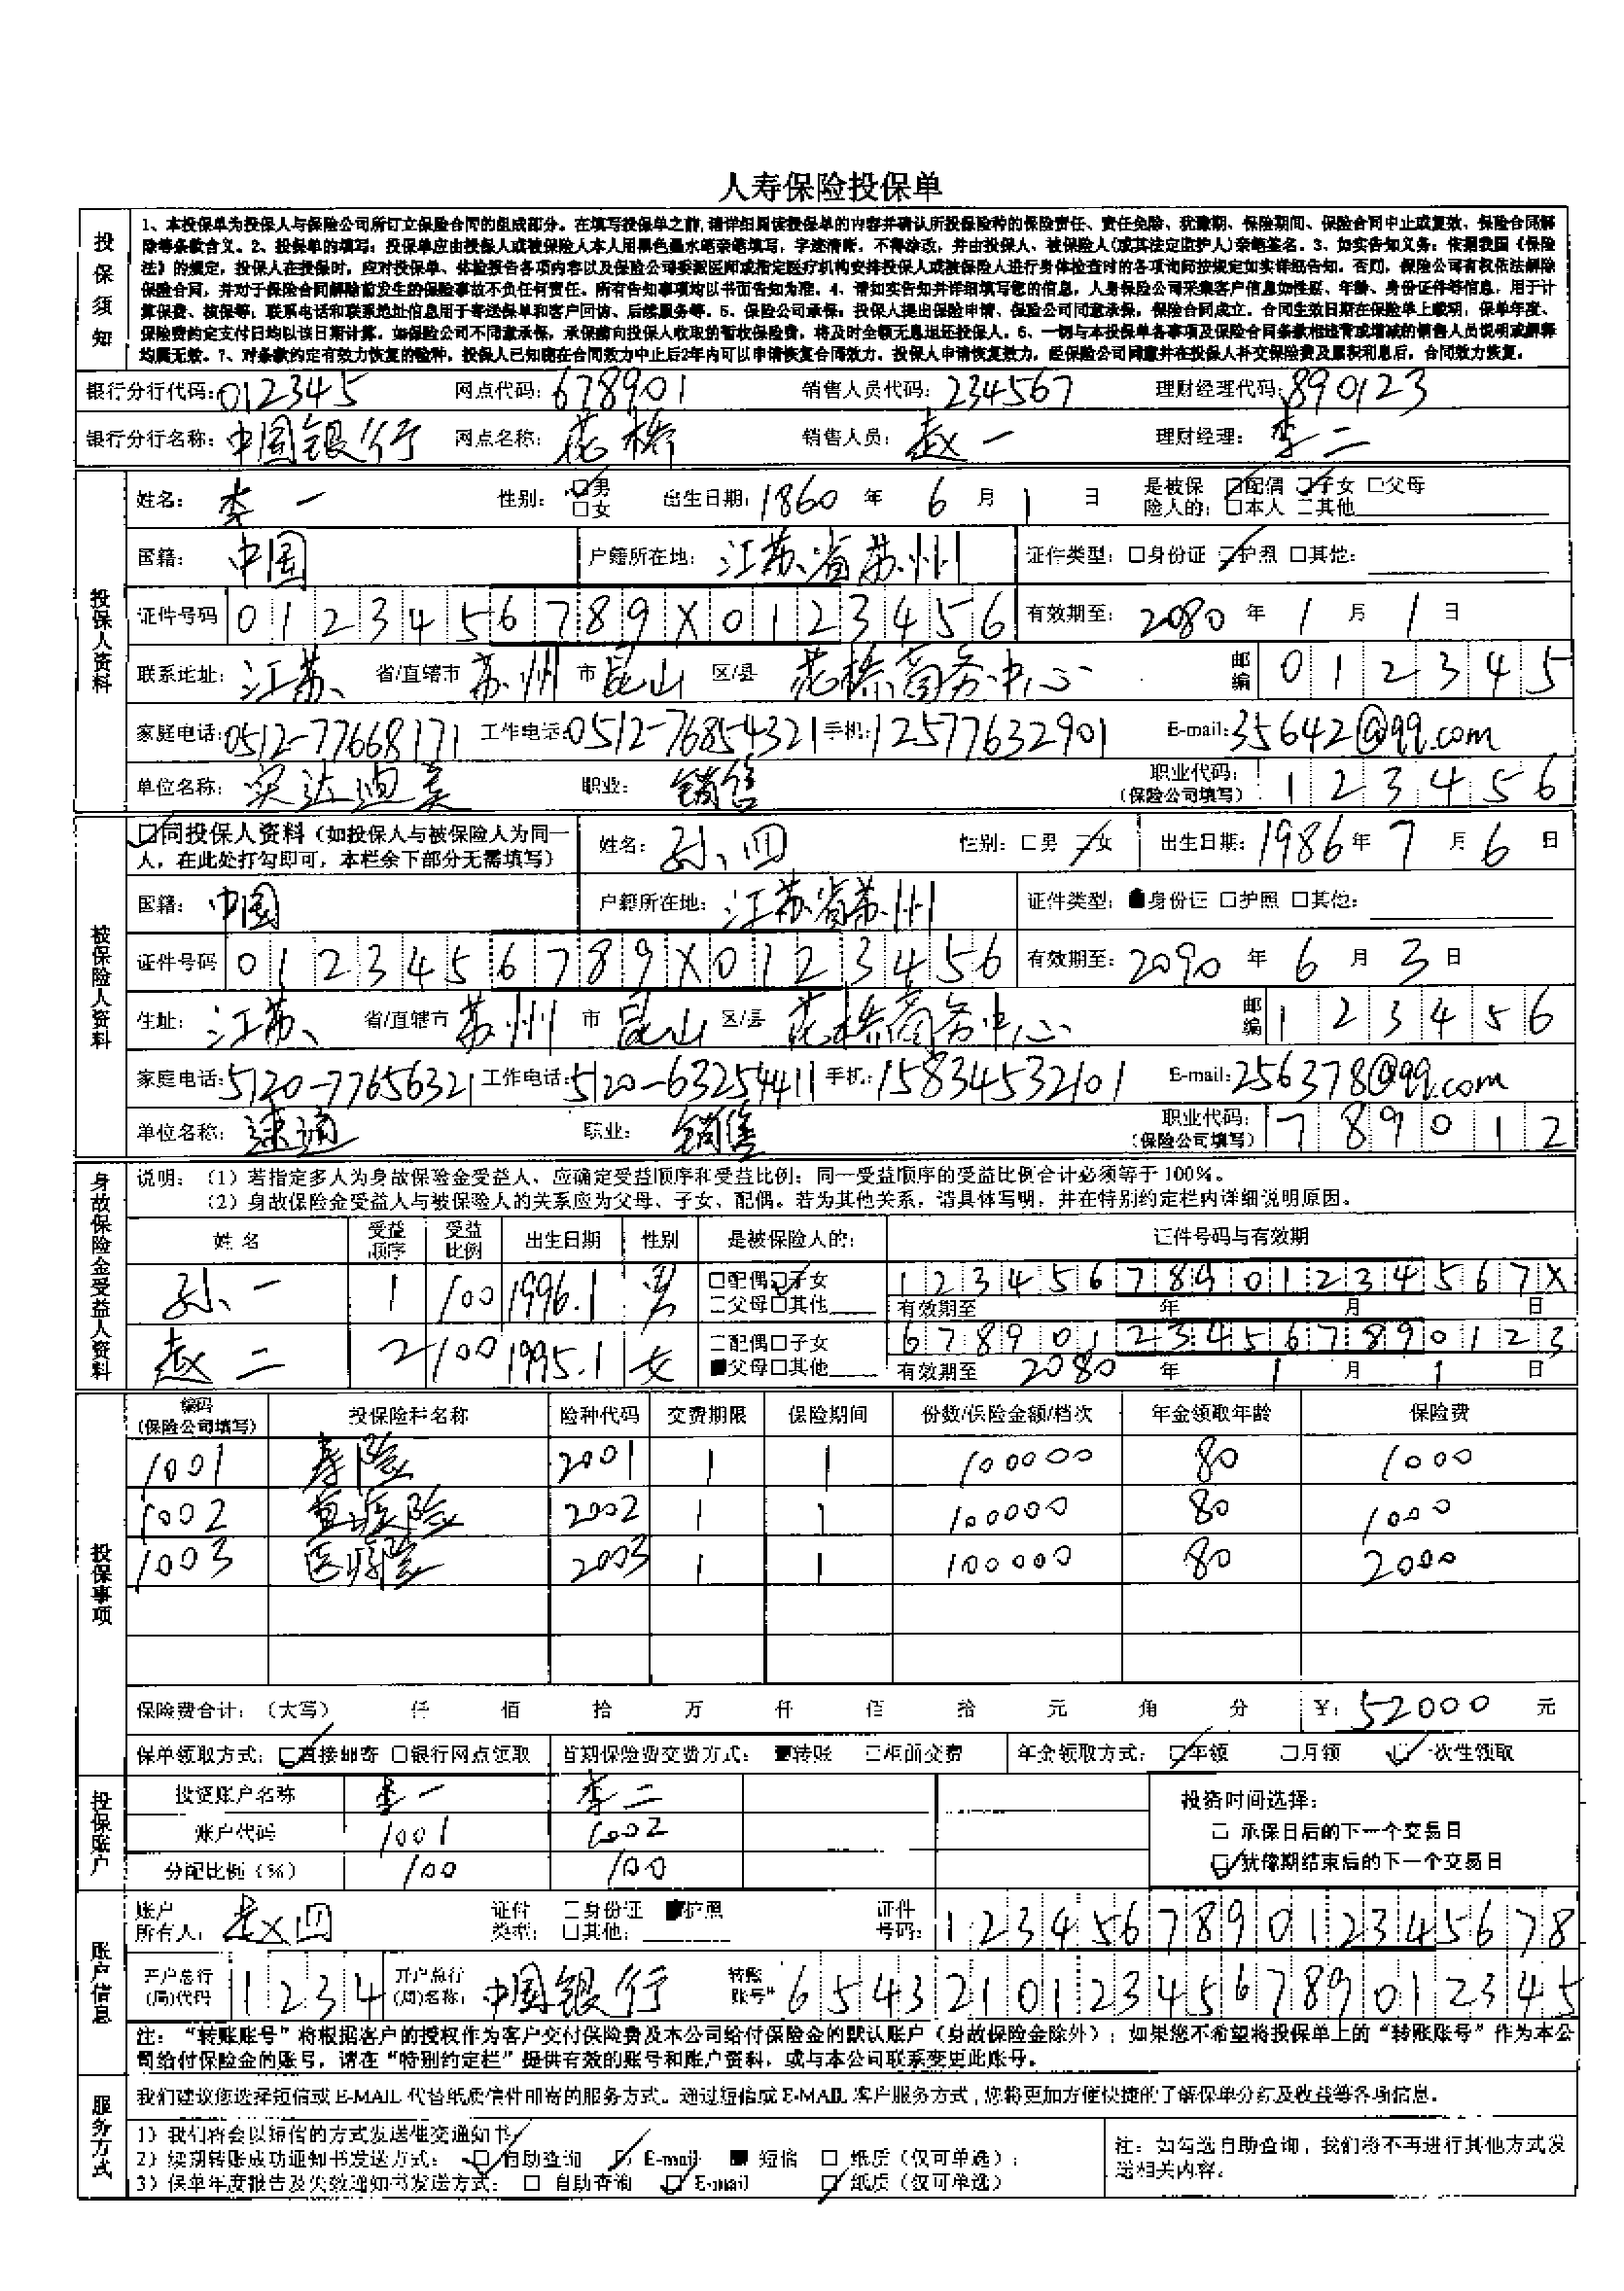 人寿保险投保单
投保须知
1、本投保单为投保人与保险公司所订立保险合同的组成部分。在填写投保单之前,请详细阅读投保单的内容并确认所投保险种的保险责任、责任免除、犹豫期、保险期间、保险合同中止或复效、保险合同解
除等条款含义。2、投保单的填写：投保单应由投保人或被保险人本人用黑色墨水笔亲笔填写，字迹清晰，不得涂改，并由投保人、被保险人(或其法定监护人)亲笔签名。3、如实告知义务：依据我国《保险
法》的规定，投保人在投保时，应对投保单、体检报告各项内容以及保险公司委派医师或指定医疗机构安排投保人或被保险人进行身体检查时的各项询问按规定如实详细告知。否则，保险公司有权依法解除
保险合同，并对于保险合同解除前发生的保险事故不负任何责任。所有告知事项均以书面告知为准。4、请如实告知并详细填写您的信息，人身保险公司采集客户信息如性别、年龄、身份证件等信息，用于计
算保费、核保等，联系电话和联系地址信息用于寄送保单和客户回访、后续服务等。5、保险公司承保：投保人提出保险申请、保险公司同意承保，保险合同成立。合同生效日期在保险单上载明，保单年度、
保险费约定支付日均以该日期计算。如保险公司不同意承保，承保前向投保人收取的暂收保险费，将及时全额无息退还投保人。6、一切与本投保单各事项及保险合同条款相违背或增减的销售人员说明或解释
均属无效。7、对条款约定有效力恢复的险种，投保人已知晓在合同效力中止后2年内可以申请恢复合同效力。投保人申请恢复效力，经保险公司同意并在投保人补交保险费及累积利息后，合同效力恢复。
银行分行代码：012345 网点代码：678901 销售人员代码：234567 理财经理代码：890123
银行分行名称：中国银行 网点名称：花桥 销售人员：赵一 理财经理：李二
投保人资料
姓名：李一 性别：□男 □女 出生日期：1860年6月1日 是被保险人的：□配偶 □子女 □父母 □本人 □其他
国籍：中国 户籍所在地：江苏省苏州 证件类型：□身份证 □护照 □其他：
证件号码 0123456789X0123456 有效期至：2080年1月1日
联系地址：江苏 省/直辖市 苏州 市 昆山 区/县 花桥商务中心 邮编 012345
家庭电话：0512-77668171 工作电话：0512-76854321 手机：12577632901 E-mail：35642@qq.com
单位名称：实达迪美 职业：销售 职业代码：（保险公司填写） 123456
被保险人资料
□同投保人资料（如投保人与被保险人为同一人，在此处打勾即可，本栏余下部分无需填写） 姓名：孙四 性别：□男 □女 出生日期：1986年7月6日
国籍：中国 户籍所在地：江苏省苏州 证件类型：■身份证 □护照 □其他：
证件号码 0123456789X0123456 有效期至：2090年6月3日
住址：江苏 省/直辖市 苏州 市 昆山 区/县 花桥商务中心 邮编 123456
家庭电话：5120-77656321 工作电话：5120-63254411 手机：15834532101 E-mail：256378@qq.com
单位名称：速通 职业：销售 职业代码：（保险公司填写） 789012
身故保险金受益人资料
说明：（1）若指定多人为身故保险金受益人、应确定受益顺序和受益比例；同一受益顺序的受益比例合计必须等于100%。
（2）身故保险金受益人与被保险人的关系应为父母、子女、配偶。若为其他关系，请具体写明，并在特别约定栏内详细说明原因。
姓名 受益顺序 受益比例 出生日期 性别 是被保险人的： 证件号码与有效期
孙一 1 100 1996.1 男 □配偶□子女 □父母□其他 12345678901234567X 有效期至 年 月 日
赵二 2 100 1995.1 女 □配偶□子女 ■父母□其他 678901234567890123 有效期至 2080年1月1日
投保事项
编码（保险公司填写） 投保险种名称 险种代码 交费期限 保险期间 份数/保险金额/档次 年金领取年龄 保险费
1001 寿险 2001 1 1 100000 80 1000
1002 重疾险 2002 1 1 100000 80 1000
1003 医疗险 2003 1 1 100000 80 2000
保险费合计：（大写） 仟 佰 拾 万 仟 佰 拾 元 角 分 ￥：52000元
保单领取方式：□直接邮寄 □银行网点领取 首期保险费交费方式：■转账 □柜面交费 年金领取方式：□年领 □月领 □一次性领取
投保账户
投资账户名称 李一 李二
账户代码 1001 1002
分配比例（%） 100 100
投资时间选择：
□ 承保日后的下一个交易日
□ 犹豫期结束后的下一个交易日
账户信息
账户所有人：赵四 证件类型：□身份证 ■护照 □其他： 证件号码：123456789012345678
开户总行(局)代码 1234 开户总行(局)名称：中国银行 转账账号* 6543210123456789012345
注：“转账账号”将根据客户的授权作为客户交付保险费及本公司给付保险金的默认账户（身故保险金除外）；如果您不希望将投保单上的“转账账号”作为本公
司给付保险金的账号，请在“特别约定栏”提供有效的账号和账户资料，或与本公司联系变更此账号。
服务方式
我们建议您选择短信或E-MAIL代替纸质信件邮寄的服务方式。通过短信或E-MAIL客户服务方式，您将更加方便快捷的了解保单分红及收益等各项信息。
1）我们将会以短信的方式发送催交通知书。
2）续期转账成功通知书发送方式：□ 自助查询 □ E-mail ■ 短信 □ 纸质（仅可单选）；
3）保单年度报告及失效通知书发送方式：□ 自助查询 □ E-mail □ 纸质（仅可单选）
注：如勾选自助查询，我们将不再进行其他方式发
送相关内容。